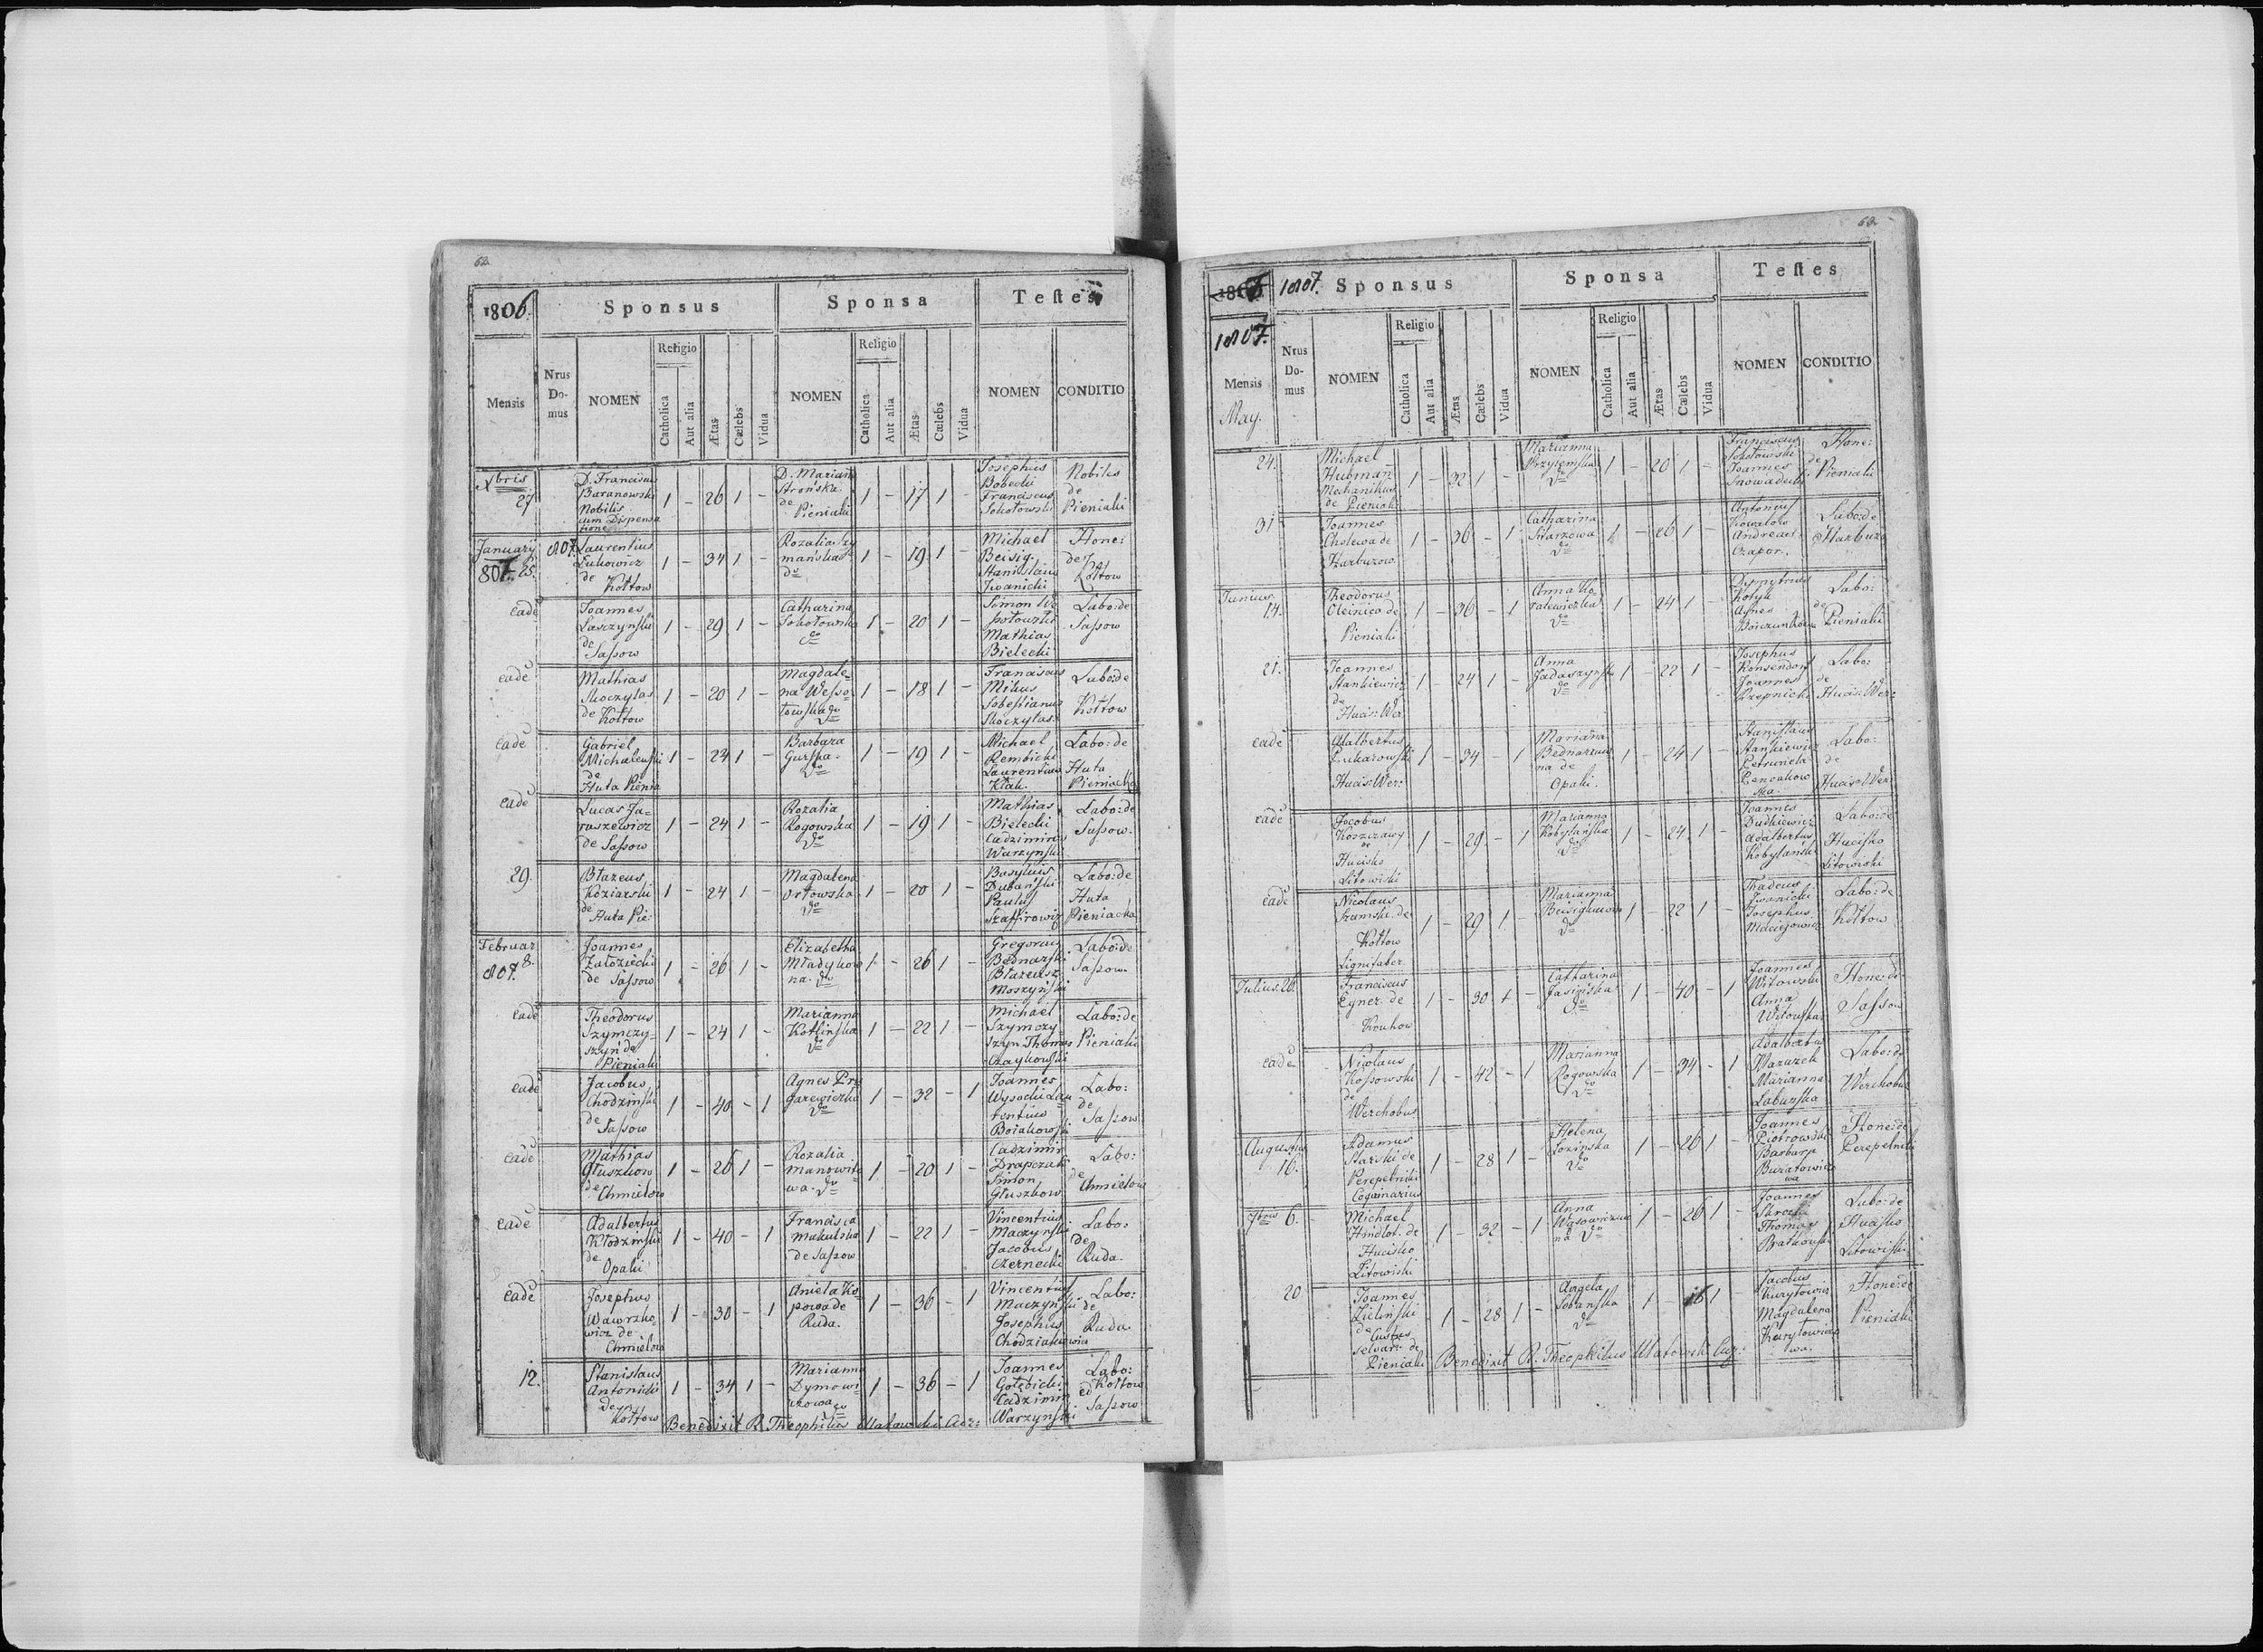 62.
1806.
Sponsus
Sponsa
Testes
Mensis
Nrus Do-mus
NOMEN
Religio
Catholica
Aut alia
Ætas
Cælebs
Vidua
NOMEN
Religio
Catholica
Aut alia
Ætas
Cælebs
Vidua
NOMEN
CONDITIO
Xbris 27
D. Franciscus Baranowski Nobilis cum Dispensatione
1 - 26 1 -
D. Marianna Strońska de Pieniaki
1 - 17 1 -
Josephus Bobecki Franciscus Sokołowski
Nobiles de Pieniaki
January 807. 25.
807.
Laurentius Lukowicz de Kołtow
1 - 34 1 -
Rozalia Szymańska do
1 - 19 1 -
Michael Beisig. Stanislaus Iwanicki
Hone: de Kołtow
eade
Joannes Sasczynski de Sassow
1 - 29 1 -
Catharina Sokołowska do
1 - 20 1 -
Simon Mathias Bielecki
Labo: de Sassow
eade
Mathias Skoczylas de Kołtow
1 - 20 1 -
Magdalena Wessołowska do
1 - 18 1 -
Franciscus Mikus Sobestianus Skoczylas.
Labo: de Kołtow
eade
Gabriel Michalewski de Huta Pienia
1 - 24 1 -
Barbara Gurska. do
1 - 19 1 -
Michael Rembicki Laurentius Kłak.
Labo: de Huta Pieniacka
eade
Lucas Jaruszewicz de Sassow
1 - 24 1 -
Rozalia Rogowska do
1 - 19 1 -
Mathias Bielecki Cadzimirus Warzynski
Labo: de Sassow.
29.
Błazeus Koziarski de Huta Pie:
1 - 24 1 -
Magdalena Orłowska do
1 - 20 1 -
Basylius Dubański Paulus Szaffirowicz
Labo: de Huta Pieniacka
Februar 8. 807.
Joannes Załoziecki de Sassow
1 - 26 1 -
Elizabetha Mładykowna. do
1 - 26 1 -
Gregorius Bednarski Błazeusz Moszyński
Labo: de Sassow.
eade
Theodorus Szymczyszyn de Pieniaki
1 - 24 1 -
Marianna Kotlińska do
1 - 22 1 -
Michael Szymczyszyn Thomas Czaykowski
Labo: de Pieniaki
eade
Jacobus Chodzinski de Sassow
1 - 40 - 1
Agnes do
1 - 32 - 1
Joannes Wysocki Laurentius Boiakowski
Labo: de Sassow
eade
Mathias Głuszkow de Chmielow
1 - 26 1 -
Rozalia do
1 - 20 1 -
Cadzimir Drapczak Simon Głuszkow
Labo: de Chmielow
eade
Adalbertus Kłodzinski de Opaki
1 - 40 - 1
Francisca Makulska de Sassow
1 - 22 1 -
Vincentius Maczynski Jacobus Czernecki
Labo: de Ruda.
eade
Josephus Wawrzkowicz de Chmielow
1 - 30 - 1
Aniela Kopowa de Ruda.
1 - 36 - 1
Vincentius Maczynski Josephus
Labo: de Ruda.
12.
Stanislaus Antonicki de Kołtow
1 - 34 1 -
Marianna do
1 - 36 - 1
Joannes Gołębicki Cadzimir Warzynski
Labo: Kołtow ed Sassow
Benedixit R. Theophilus
63.
1807.
Sponsus
Sponsa
Testes
1807.
Mensis
May.
Nrus Do-mus
NOMEN
Religio
Catholica
Aut alia
Ætas
Cælebs
Vidua
NOMEN
Religio
Catholica
Aut alia
Ætas
Cælebs
Vidua
NOMEN
CONDITIO
24.
Michael Hubman Mechanikus de Pieniaki
1 - 32 1 -
Marianna Przytemska do
1 - 20 1 -
Franciscus Sokołowski Joannes
Hone: de Pieniaki
31
Joannes Cholewa de Harbuzow
1 - 36 - 1
Catharina Sitarzowa do
1 - 26 1 -
Antonius Kowalow Andreas Czapor.
Labo: de Harbuzo
Junius 14.
Theodorus Oleinico de Pieniaki
1 - 36 - 1
Anna do
1 - 24 1 -
Dymytrius Kotyk Agnes
Labo: de Pieniaki
21.
Joannes Stankiewicz de Hucis: Wer:
1 - 24 1 -
Anna do
1 - 22 1 -
Josephus Joannes Rzepnicki
Labo: de Hucis: Wer:
eade
Adalbertus Lukarowski Hucis: Wer:
1 - 34 - 1
Marianna Bednarzuwna de Opaki.
1 - 24 1 -
Stanislaus Stankiewicz Petrunela
Labo: de Hucis: Wer:
eade
Jacobus Koszczawy de Hucisko Litowiski
1 - 29 - 1
Marianna Kobylańska do
1 - 24 1 -
Joannes Dudkiewicz Adalbertus Kobylański
Labo: de Hucisko Litowiski
eade
Nicolaus de Kołtow Lignifaber
1 - 29 1 -
Marianna do
1 - 22 1 -
Thadeus Iwanicki Josephus Maciejowicz
Labo: de Kołtow
Julius 26.
Franciscus Egner. de
1 - 30 1 -
Catharina Jasinska do
1 - 40 - 1
Joannes Witowski Anna Witowska
Hone: de Sassow
eade
Nicolaus Kossowski de Werchobus
1 - 42 - 1
Marianna Rogowska do
1 - 34 - 1
Adalbertus Mazurek Marianna Labunska
Labo: de Werchobus
Augustus 16.
Adamus Starski de Perepelniki
1 - 28 1 -
Helena Lozinska do
1 - 26 1 -
Joannes Piotrowski Barbara
Hone: de Perepelniki
7bris 6.
Michael de Hucisko Litowiski
1 - 32 - 1
Anna do
1 - 26 1 -
Joannes Thomas Bratkowski
Labo: de Hucisko Litowiski
20
Joannes Zielinski de Pieniaki
1 - 28 1 -
Angela Sobanska do
1 - 18 1 -
Jacobus Kurytowicz Magdalena Kurytowiczowa.
Hone: de Pieniaki
Benedixit R. Theophilus